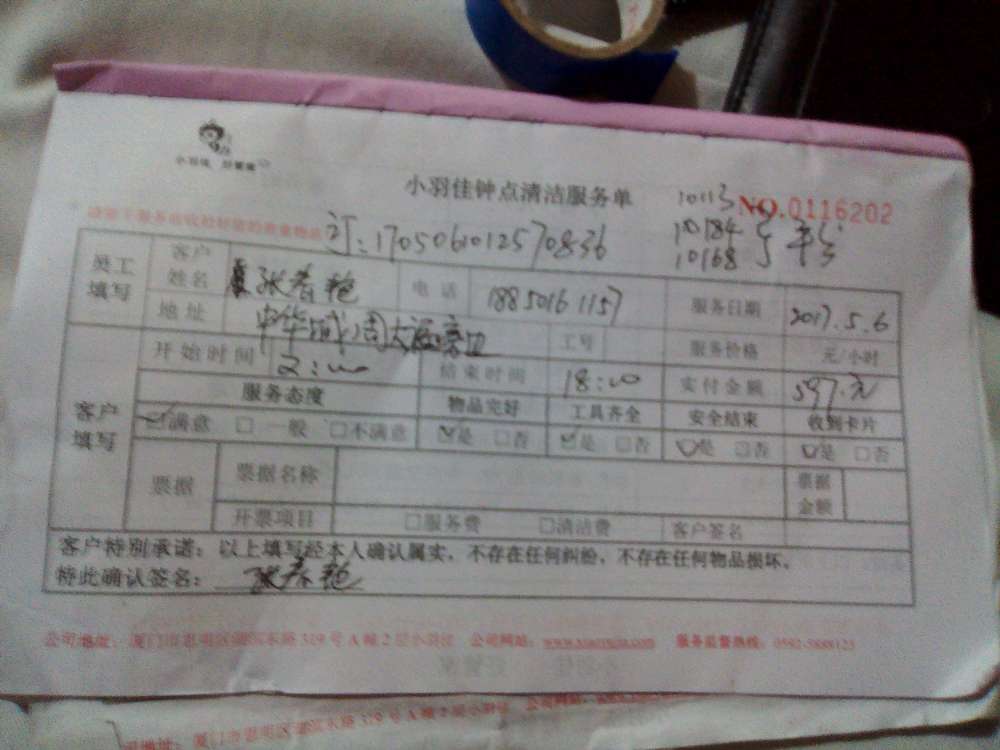 小羽佳
小羽佳钟点清洁服务单
NO.0116202
10113
10184
10168
订:1705061012570836
员工填写
客户姓名 张春艳
电话 18850161157
服务日期 2017.5.6
地址 中华城
工号
服务价格 元/小时
客户填写
开始时间 2:00
结束时间 18:00
实付金额 597.元
服务态度 物品完好 工具齐全 安全结束 收到卡片
☑满意 □一般 □不满意 ☑是 □否 ☑是 □否 ☑是 □否 ☑是 □否
票据 票据名称 票据金额
开票项目 □服务费 □清洁费 客户签名
客户特别承诺:以上填写经本人确认属实,不存在任何纠纷,不存在任何物品损坏。
特此确认签名: 张春艳
公司地址:厦门市思明区湖滨东路319号A幢2层小羽佳 公司网站: 服务监督热线:0592-5888123